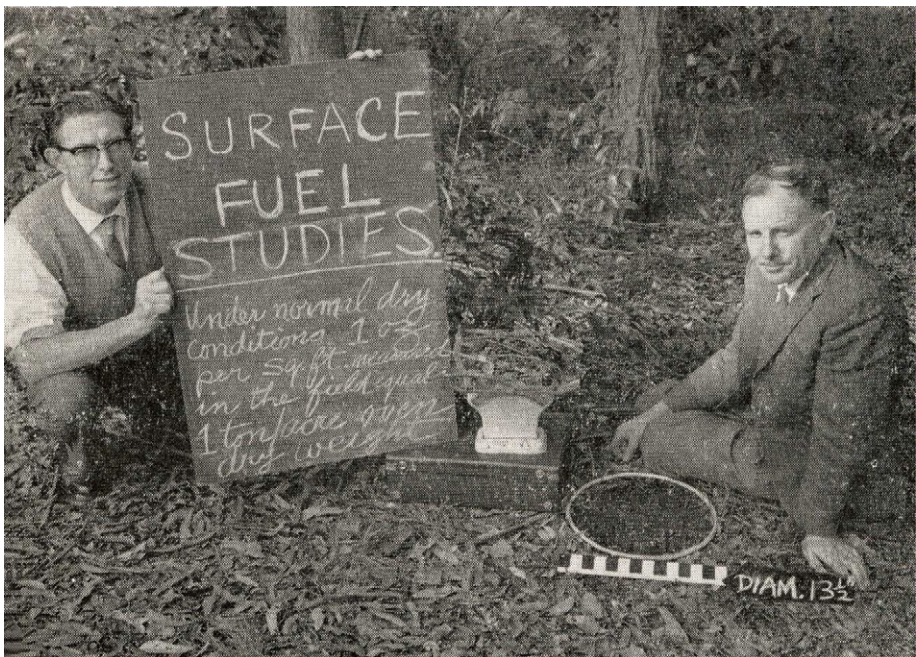 SURFACE
FUEL
STUDIES.
Under normal dry
conditions 1 oz
per sq. ft. measured
in the field equal
1 ton/acre oven
dry weight
DIAM. 13½"